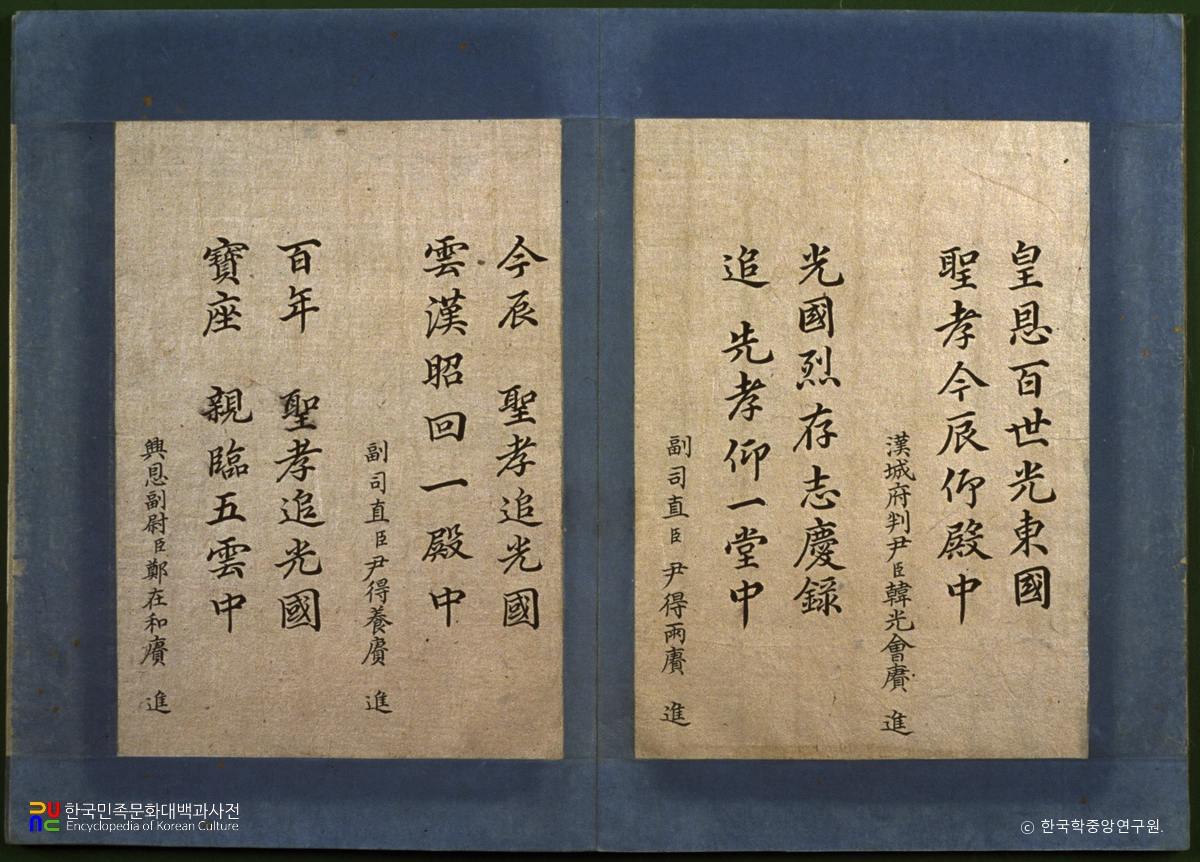 皇恩百世光東國
聖孝今辰仰殿中
漢城府判尹臣韓光會賡 進
光國烈存志慶錄
追 先孝仰一堂中
副司直臣尹得兩賡 進
今辰 聖孝追光國
雲漢昭回一殿中
副司直臣尹得養賡 進
百年 聖孝追光國
寶座 親臨五雲中
興恩副尉臣鄭在和賡 進
한국민족문화대백과사전
Encyclopedia of Korean Culture
© 한국학중앙연구원.